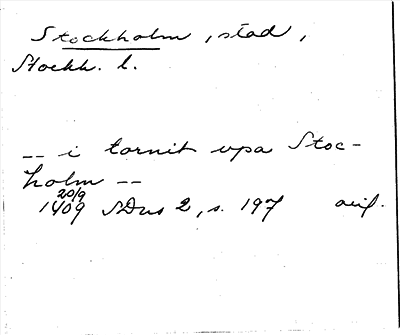 Stockholm, stad,
Stockh. l.
-- i tornit vpa Stoc-
holm --
20/9
1409 SDns 2, s. 197 avsk.